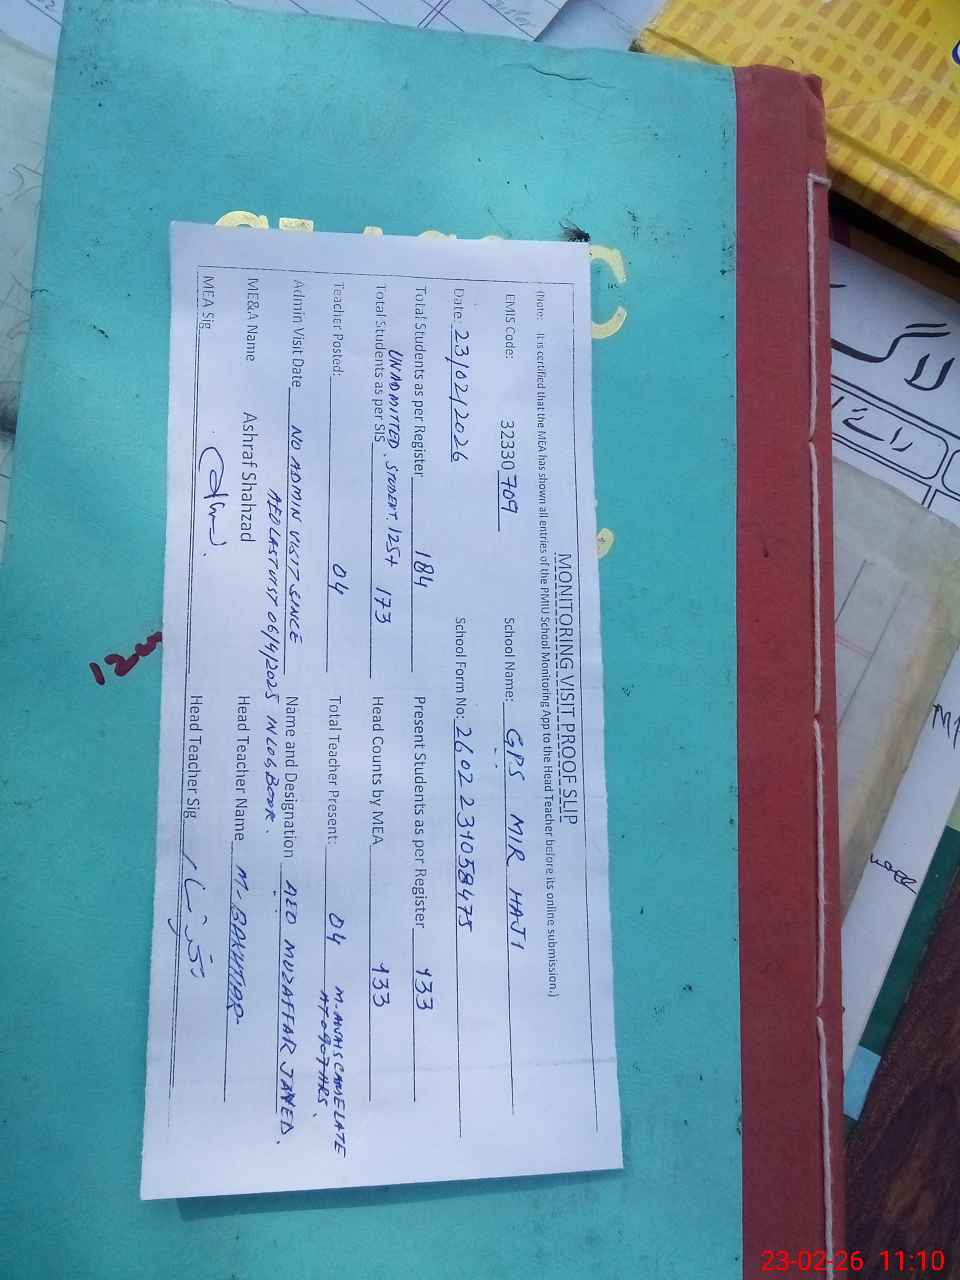 MONITORING VISIT PROOF SLIP
(Note: It is certified that the MEA has shown all entries of the PMIU School Monitoring App to the Head Teacher before its online submission.)
EMIS Code: 32330709 School Name: GPS MIR HAJI
Date: 23/02/2026 School Form No: 2602231058475
Total Students as per Register 184 Present Students as per Register 133
UNADMITTED. STUDENT. 125+
Total Students as per SIS 173 Head Counts by MEA 133
Teacher Posted: 04 Total Teacher Present: 04 M. AWAIS CAME LATE
AT 0907 HRS.
Admin Visit Date NO ADMIN VISIT SINCE Name and Designation AEO MUZAFFAR JAVED.
AEO LAST VIST 06/9/2025 IN LOG BOOK.
ME&A Name Ashraf Shahzad Head Teacher Name M. BAKHTIAR
MEA Sig Head Teacher Sig
لاگ
23-02-26 11:10